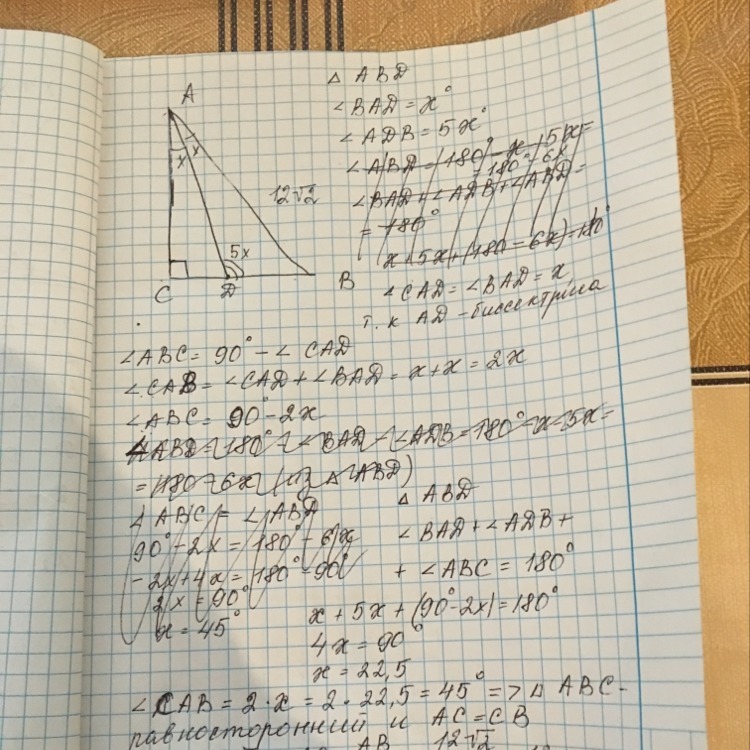 A
x x
12√2
5x
C D B
△ ABD
∠BAD = x°
∠ADB = 5x°
∠ABD = 180° - x - 5x =
= 180° - 6x
∠BAD + ∠ADB + ∠ABD =
= 180°
x + 5x + (180 - 6x) = 180°
∠CAD = ∠BAD = x
т.к AD - биссектриса
∠ABC = 90° - ∠ CAD
∠CAB = ∠CAD + ∠BAD = x + x = 2x
∠ABC = 90 - 2x
∠ABD = 180° - ∠BAD - ∠ADB = 180° - x - 5x =
= 180 - 6x (из △ ABD)
∠ABC = ∠ABD
90° - 2x = 180° - 6x
-2x + 4x = 180° - 90°
2x = 90°
x = 45°
△ ABD
∠BAD + ∠ADB +
+ ∠ABC = 180°
x + 5x + (90° - 2x) = 180°
4x = 90°
x = 22,5
∠CAB = 2·x = 2·22,5 = 45° => △ ABC -
равносторонний и AC = CB
AB 12√2